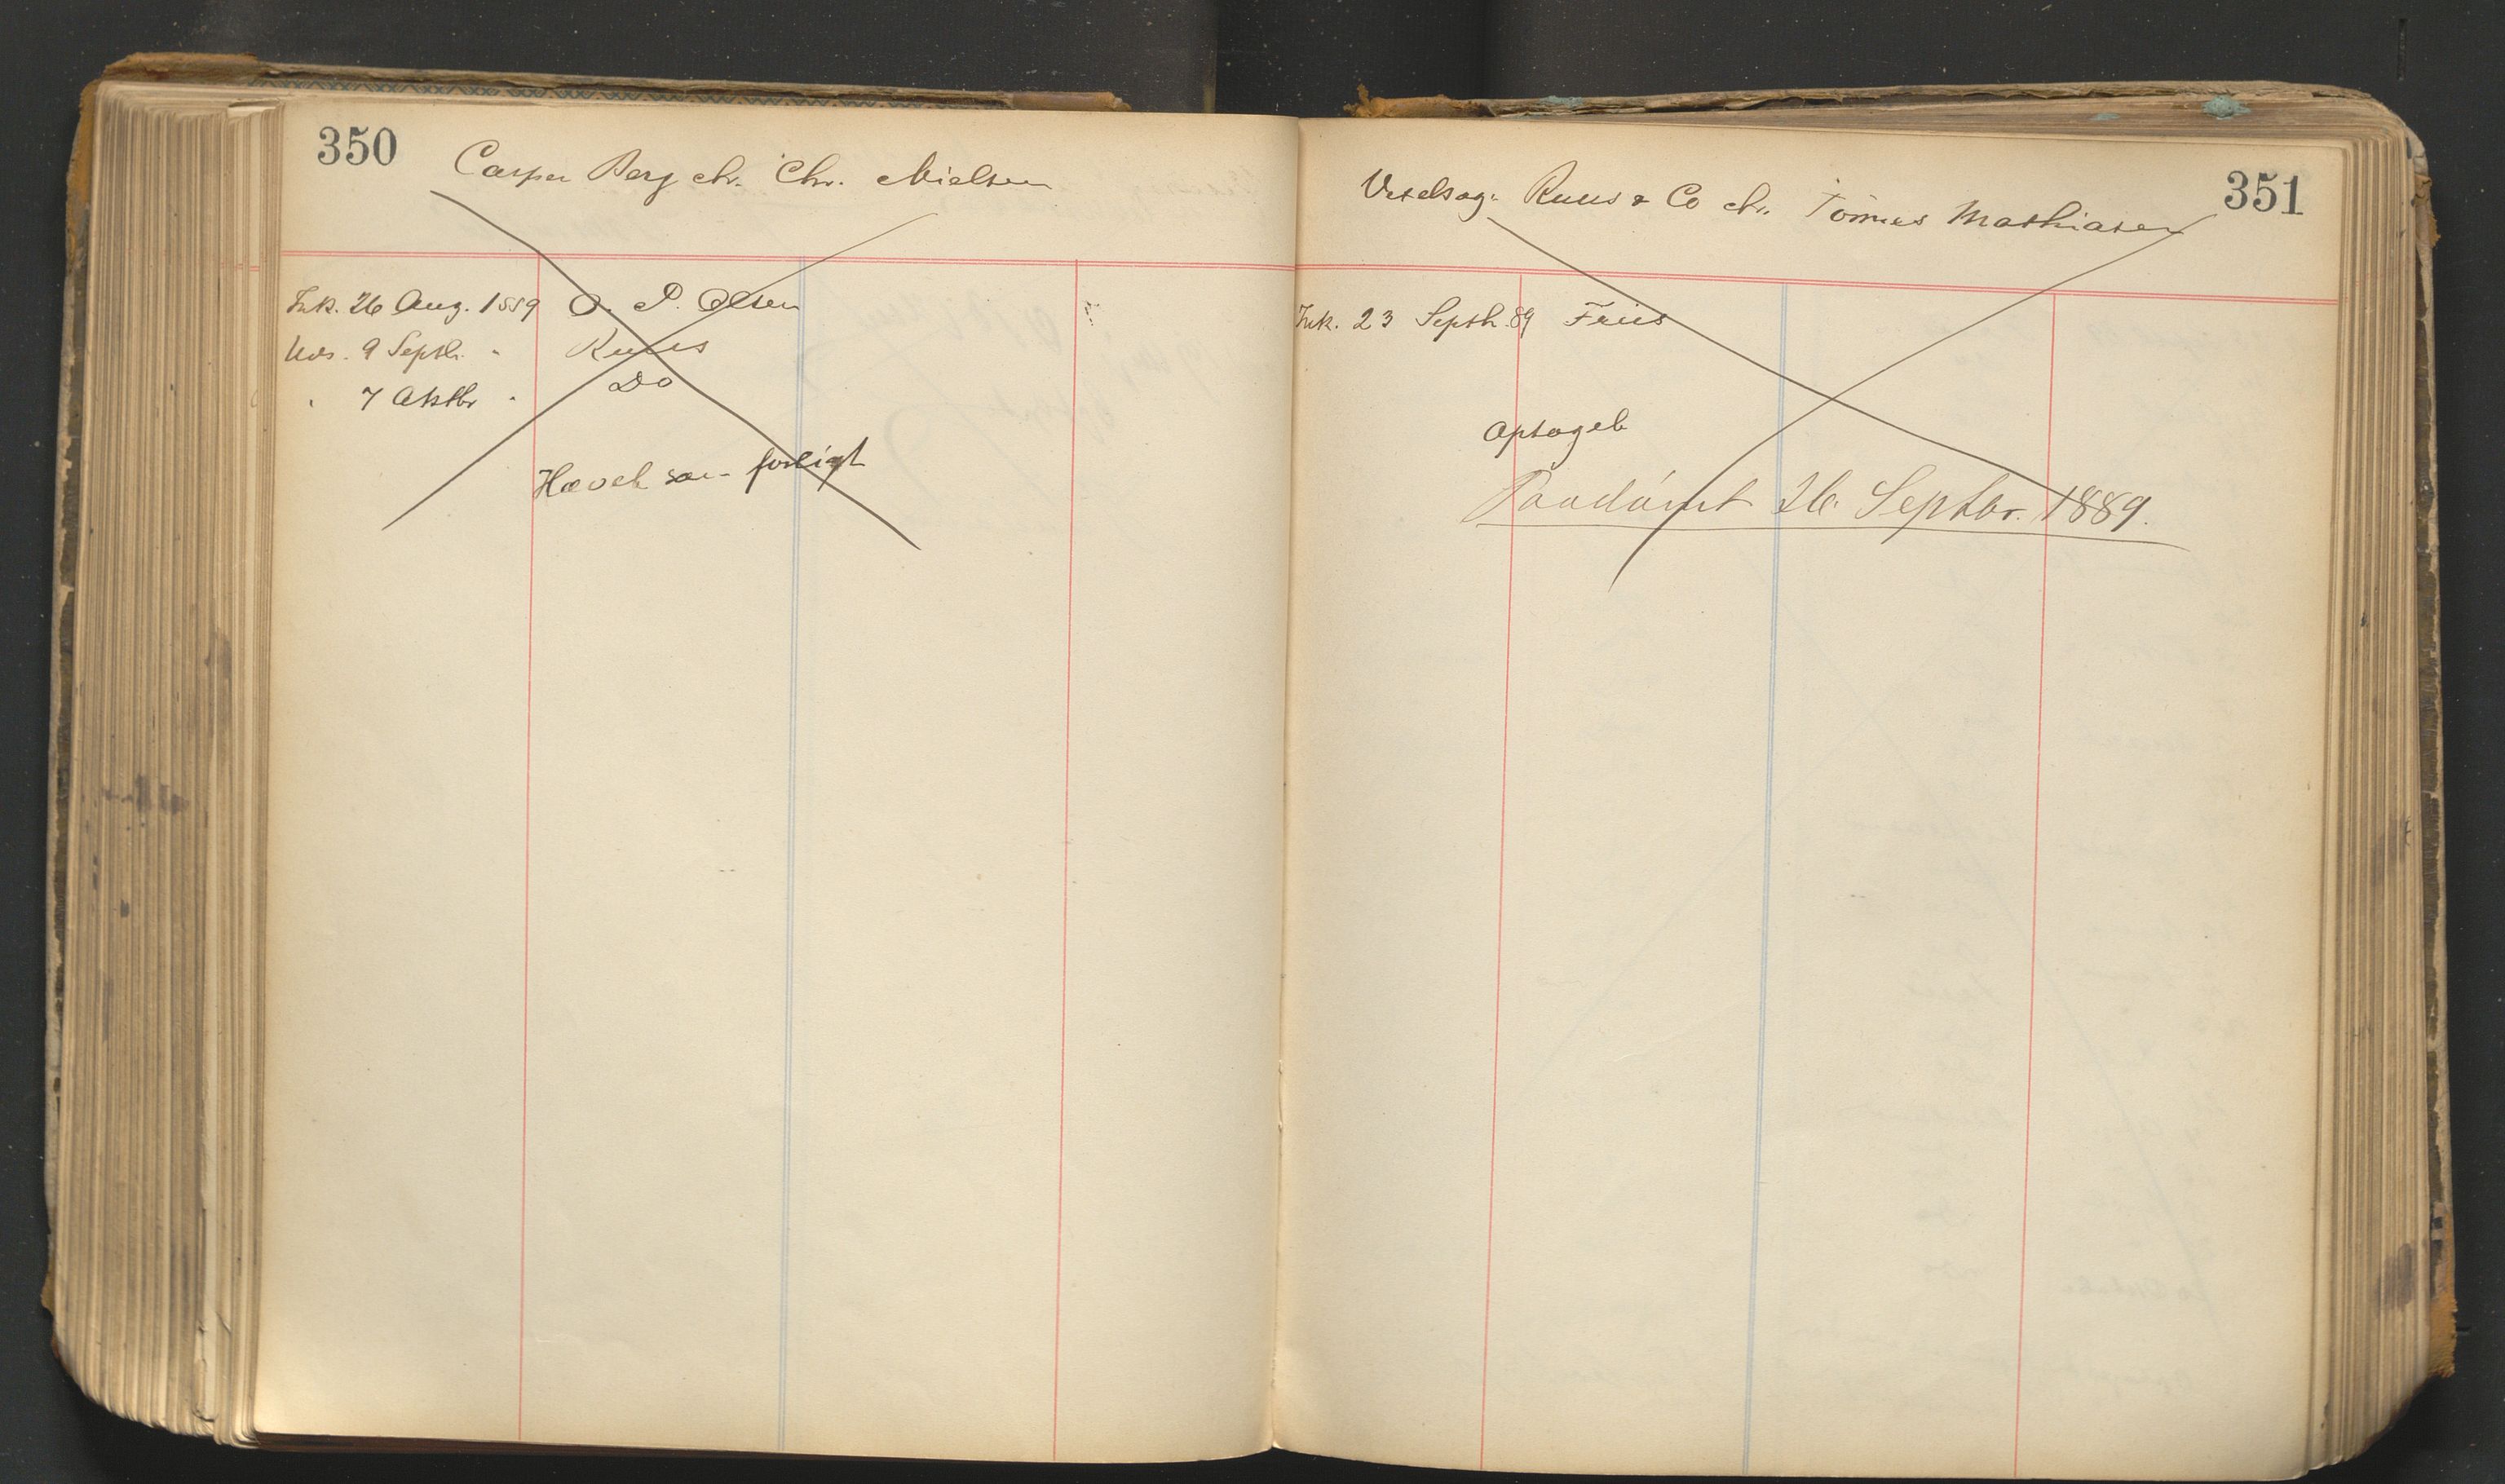 350
Casper Berg ctr. Chr. Nielsen
Ink. 26 Aug. 1889 O. P. Olsen
Uds. 9 Septb. " Ruus
" 7 Oktbr " Do
Hævet som forligt
351
Vexelsag: Ruus & Co ctr. Tönnes Mathiasen
Ink. 23 Septb. 89 Friis
Optaget
Paadömt 26 Septbr. 1889.